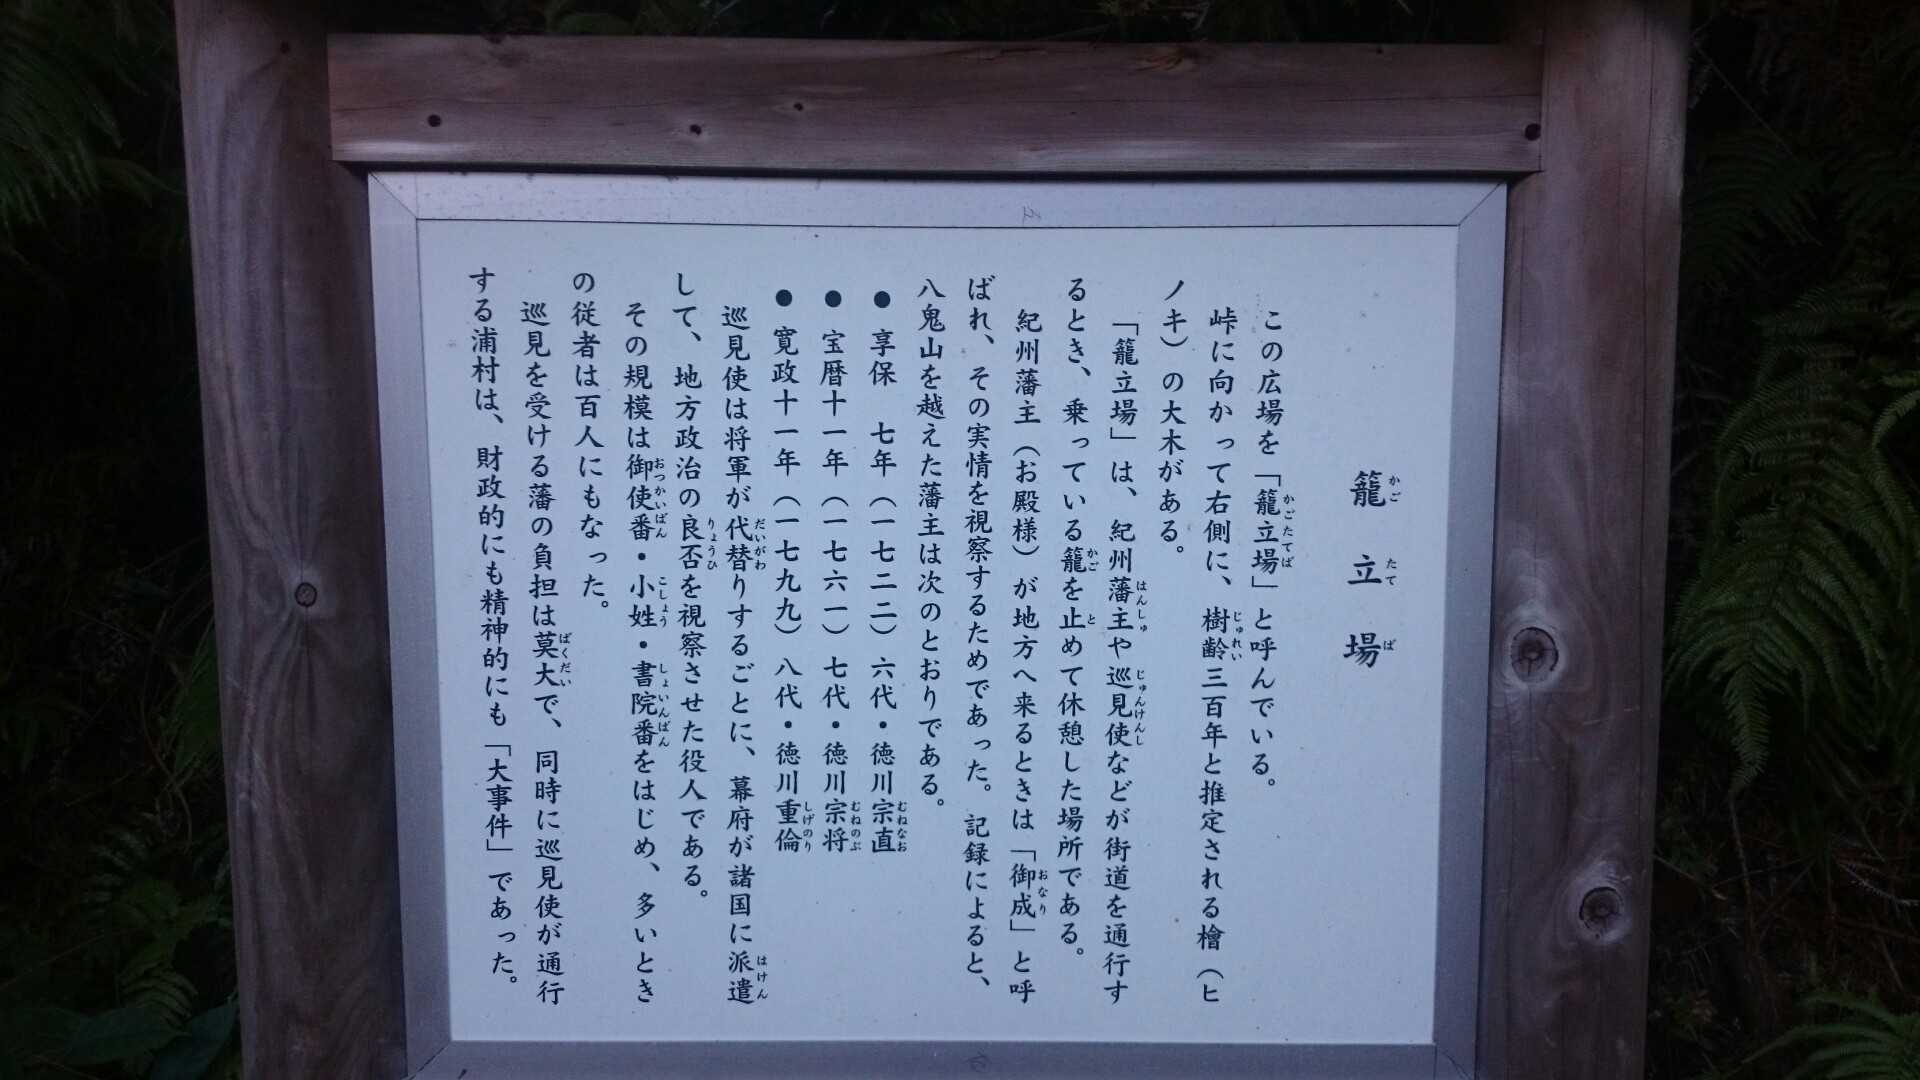 籠立場
この広場を「籠立場」と呼んでいる。
峠に向かって右側に、樹齢三百年と推定される檜（ヒ
ノキ）の大木がある。
「籠立場」は、紀州藩主や巡見使などが街道を通行す
るとき、乗っている籠を止めて休憩した場所である。
紀州藩主（お殿様）が地方へ来るときは「御成」と呼
ばれ、その実情を視察するためであった。記録によると、
八鬼山を越えた藩主は次のとおりである。
● 享保 七年（一七二二）六代・徳川宗直
● 宝暦十一年（一七六一）七代・徳川宗将
● 寛政十一年（一七九九）八代・徳川重倫
巡見使は将軍が代替りするごとに、幕府が諸国に派遣
して、地方政治の良否を視察させた役人である。
その規模は御使番・小姓・書院番をはじめ、多いとき
の従者は百人にもなった。
巡見を受ける藩の負担は莫大で、同時に巡見使が通行
する浦村は、財政的にも精神的にも「大事件」であった。